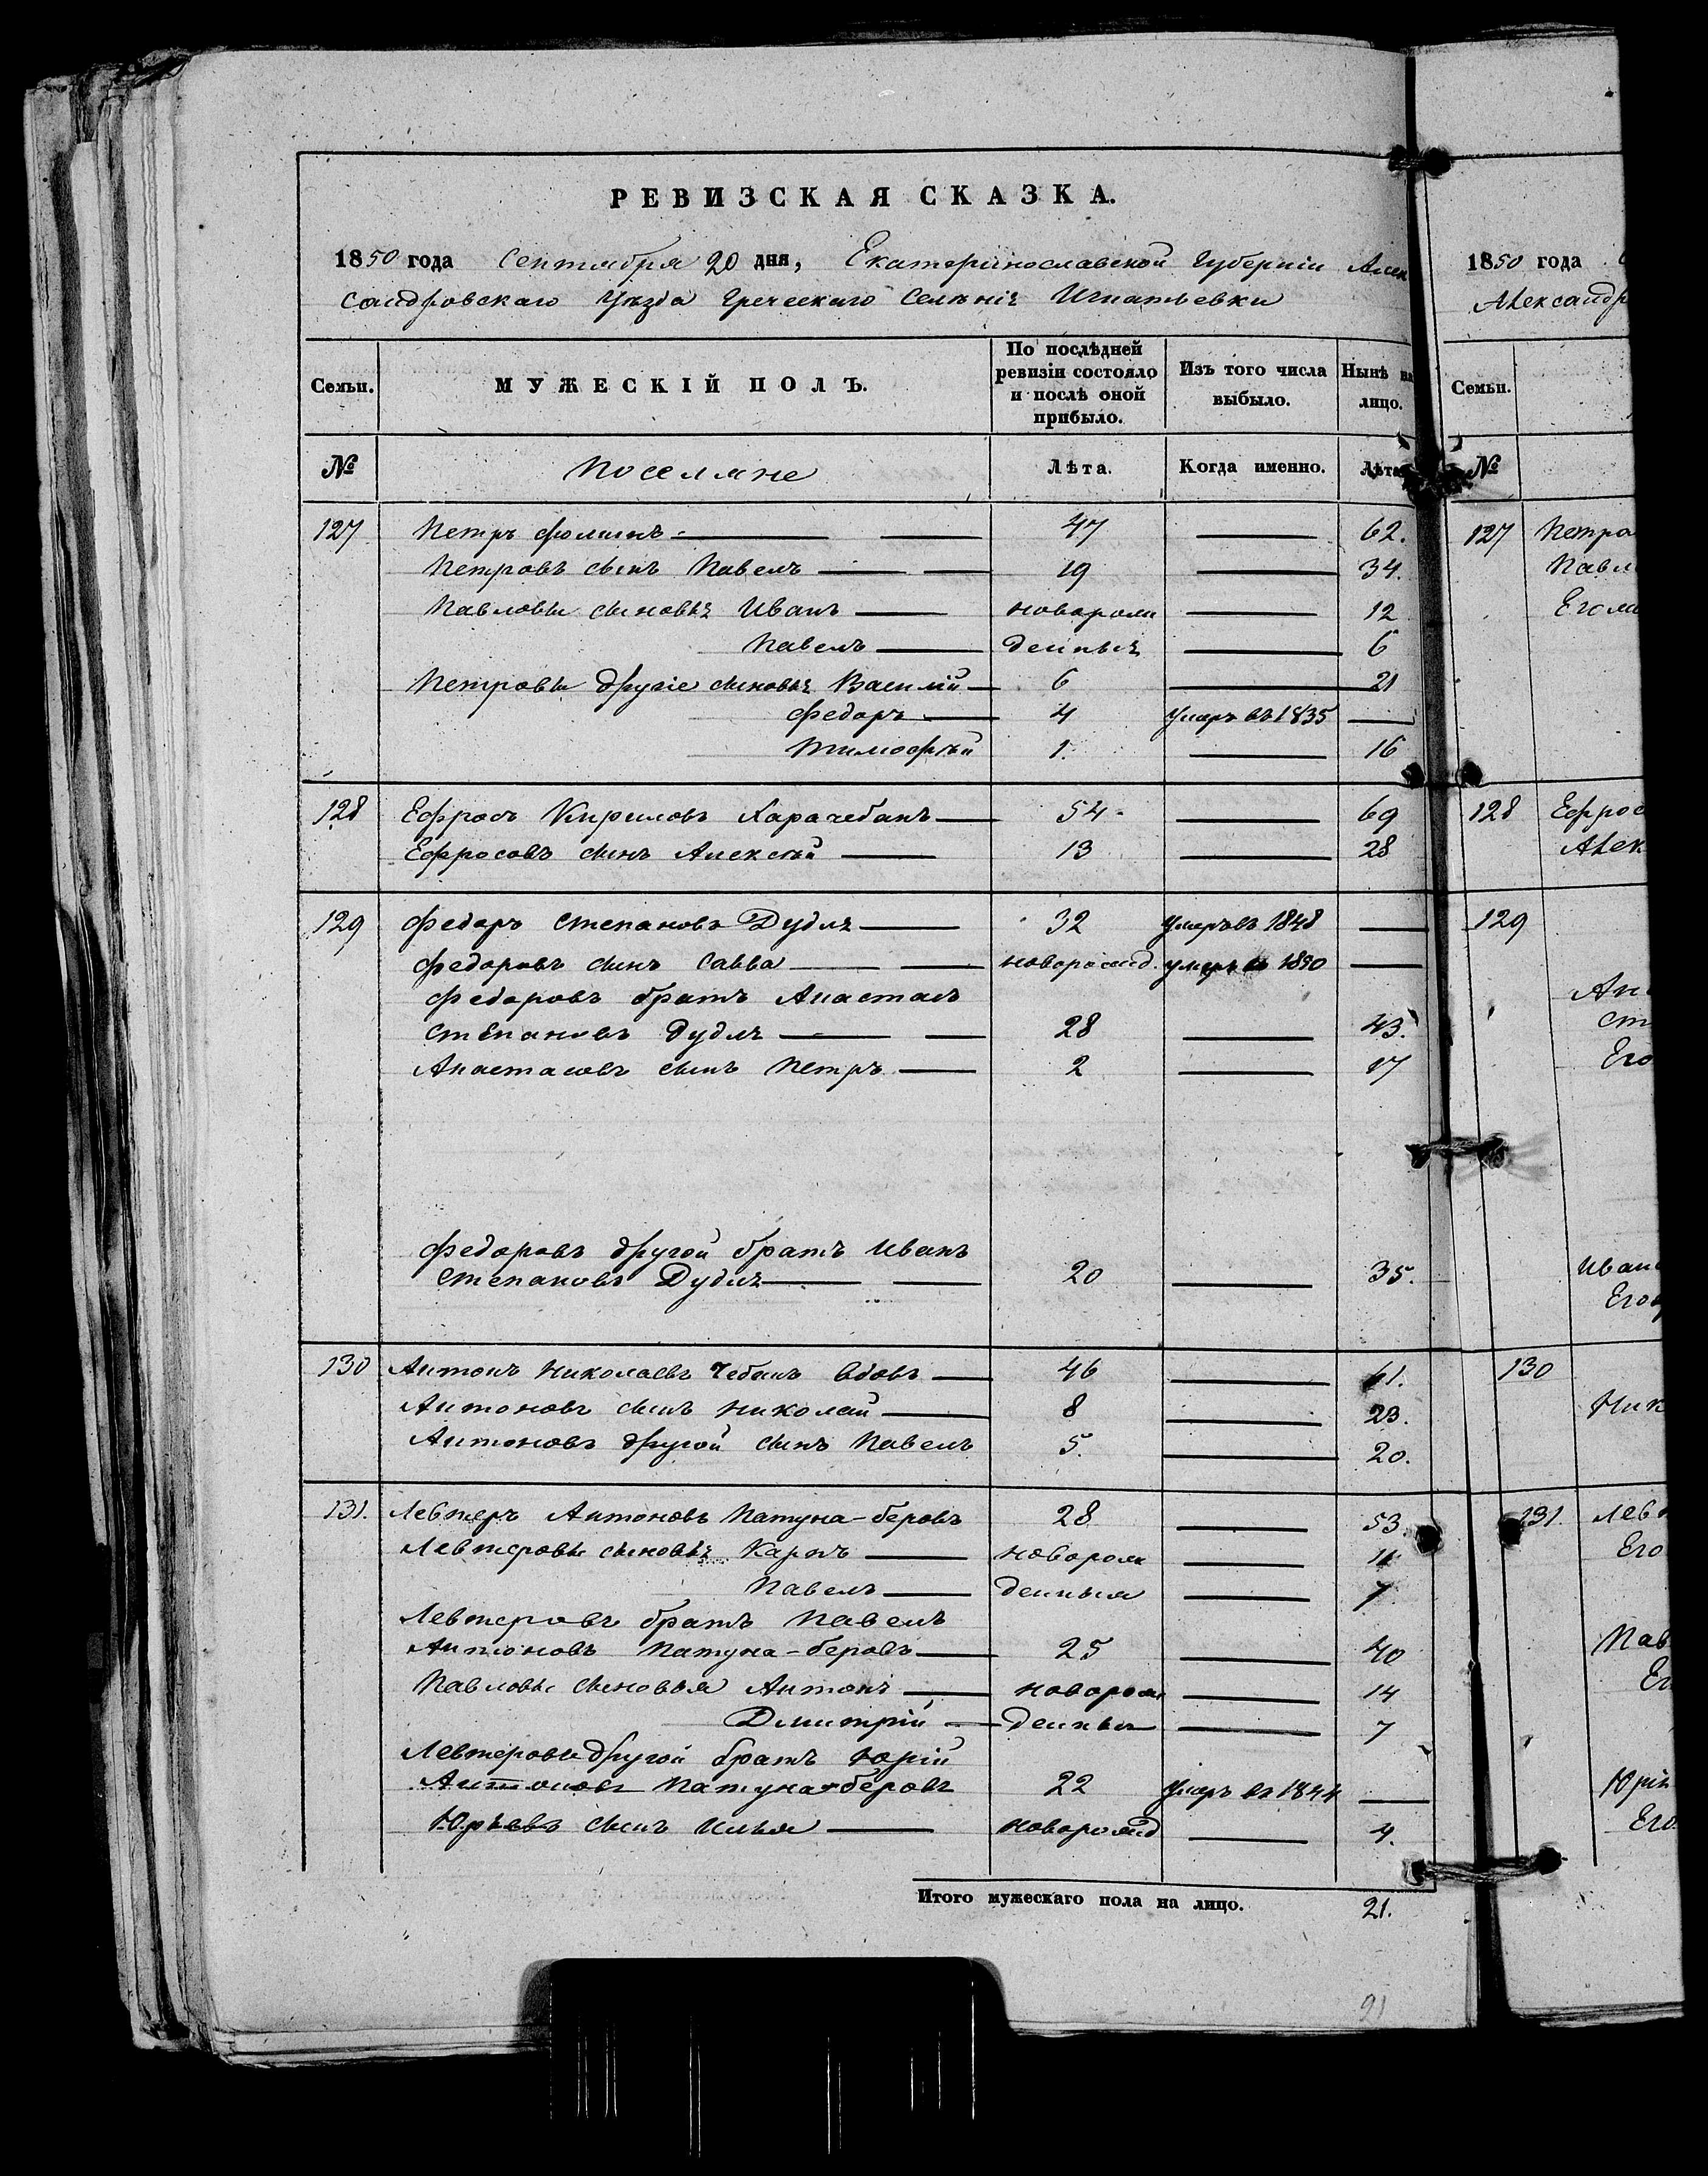 РЕВИЗСКАЯ СКАЗКА.
1850 года Сентября 20 дня, Екатеринославской Губерніи Алек
сандровскаго Уѣзда Греческаго Селеніе Игнатьевки
Семьи. МУЖЕСКІЙ ПОЛЪ. По послѣдней ревизіи состояло и послѣ оной прибыло. Изъ того числа выбыло. Нынѣ на лицо.
№ Поселяне Лѣта. Когда именно. Лѣта
127 Петръ Фоминъ 47 62.
Петровъ сынъ Павелъ 19 34.
Павловы сыновья Иванъ новорож 12
Павелъ денные 6
Петровы другіе сыновья Василій 6 21
Федоръ 4 умеръ въ 1835
Тимофей 1. 16
128 Ефросъ Кириловъ Карачебанъ 54 69
Ефросовъ сынъ Алексѣй 13 28
129 Федоръ Степановъ Дудля 32 умеръ въ 1848
Федоровъ сынъ Савва новорожд. умеръ въ 1850
Федоровъ братъ Анастасъ
Степановъ Дудля 28 43.
Анастасовъ сынъ Петръ 2 17
Федоровъ другой братъ Иванъ
Степановъ Дудля 20 35.
130 Антонъ Николаевъ Чебанъ вдовъ 46 61.
Антоновъ сынъ Николай 8 23.
Антоновъ другой сынъ Павелъ 5. 20.
131. Левтеръ Антоновъ Патуна-беровъ 28 53.
Левтеровы сыновья Карпъ новорож 11
Павелъ денныя 7
Левтеровъ братъ Павелъ
Антоновъ Патуна-беровъ 25 40
Павловы сыновья Антонъ новорож 14
Дмитрій денные 7
Левтеровы другой братъ Юрій
Антоновъ Патуна-беровъ 22 умеръ въ 1844
Юрьевъ сынъ Илья новорожд 4.
Итого мужескаго пола на лицо. 21.
21
1850 года
Александр
Семьи.
№
127 Петра
Павл
Его
128 Ефрос
Алек
129
Ан
Ст
Его
Иван
Его
130
Ник
131. Лев
Его
Пав
Ег
Юрі
Его